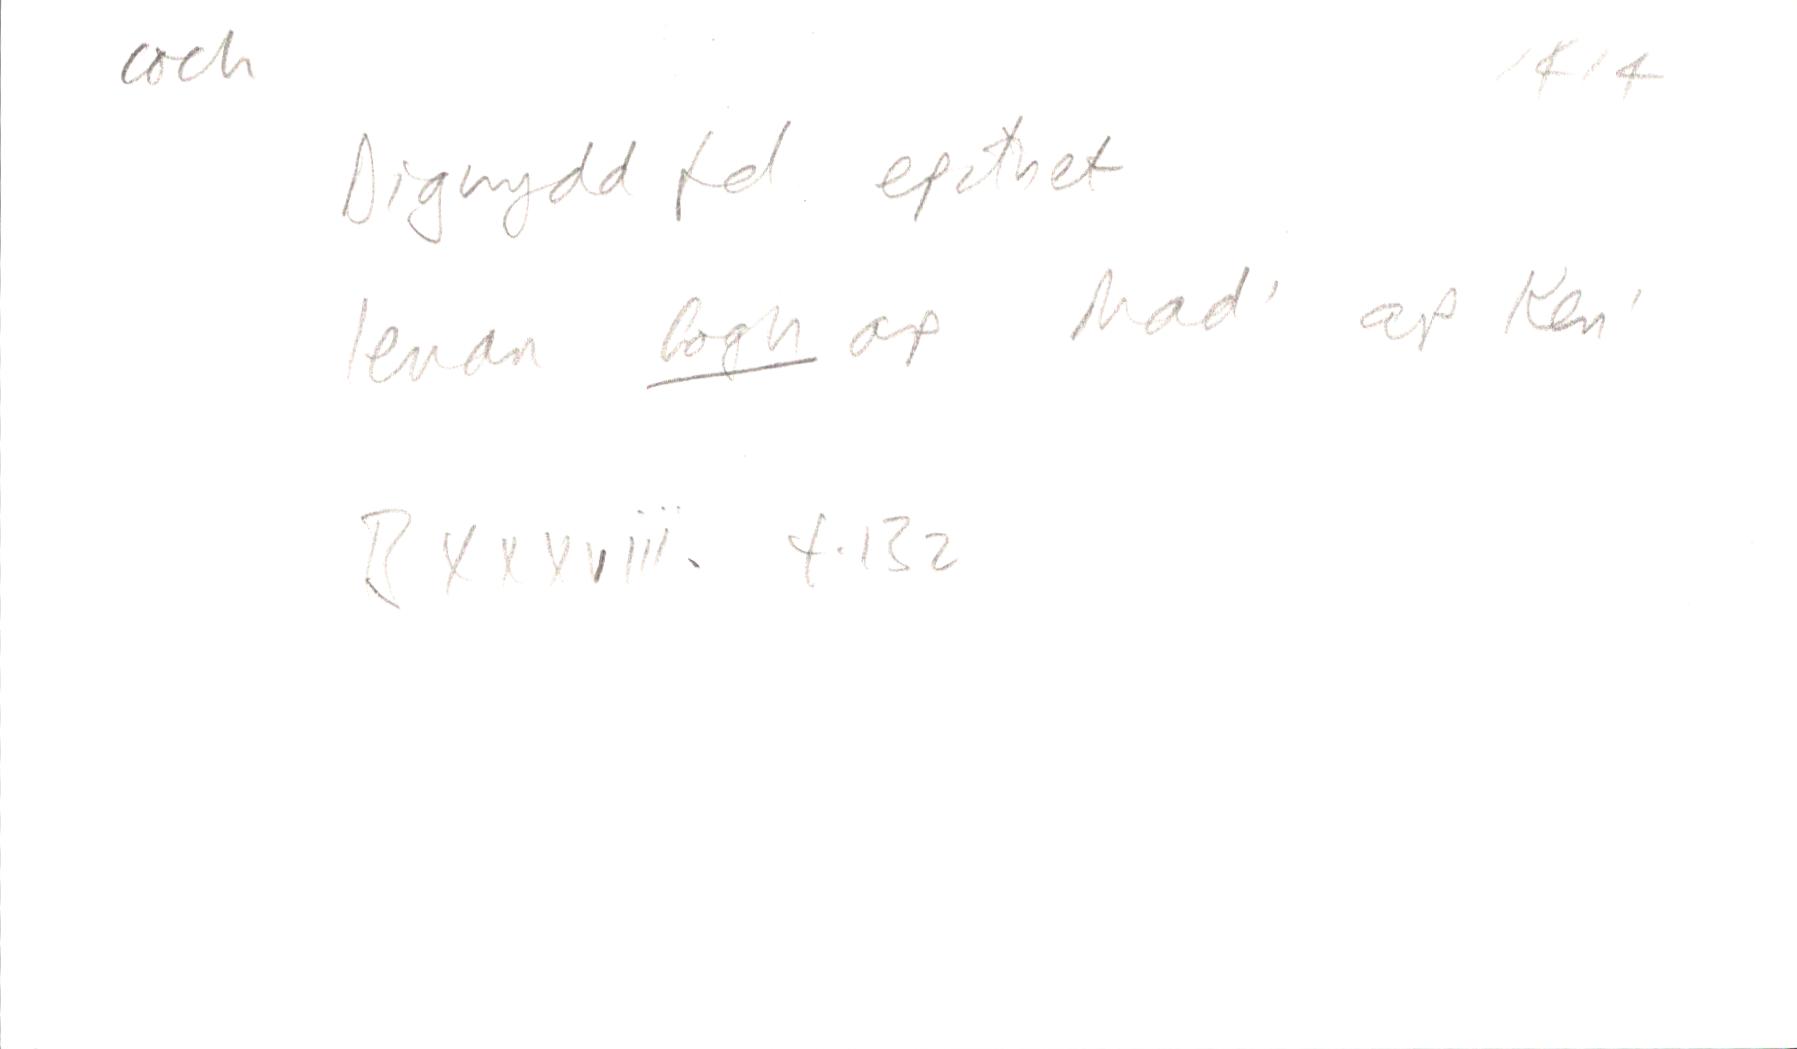 coch 1414
Digwydd fel epithet
Ieuan Cogh ap Mad' ap Ken'
B xxxviii. t.132